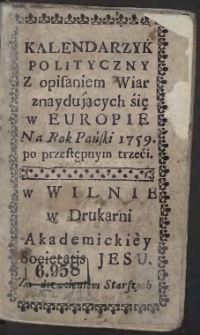 KALENDARZYK
POLITYCZNY
Z opisaniem Wiar
znayduiących się
w EUROPIE
Na Rok Pański 1759.
po przestępnym trzeći.
w WILNIE
w Drukarni
Akademickiéy
Societatis JESU.
6.958
Za dozwoleniem Starszych